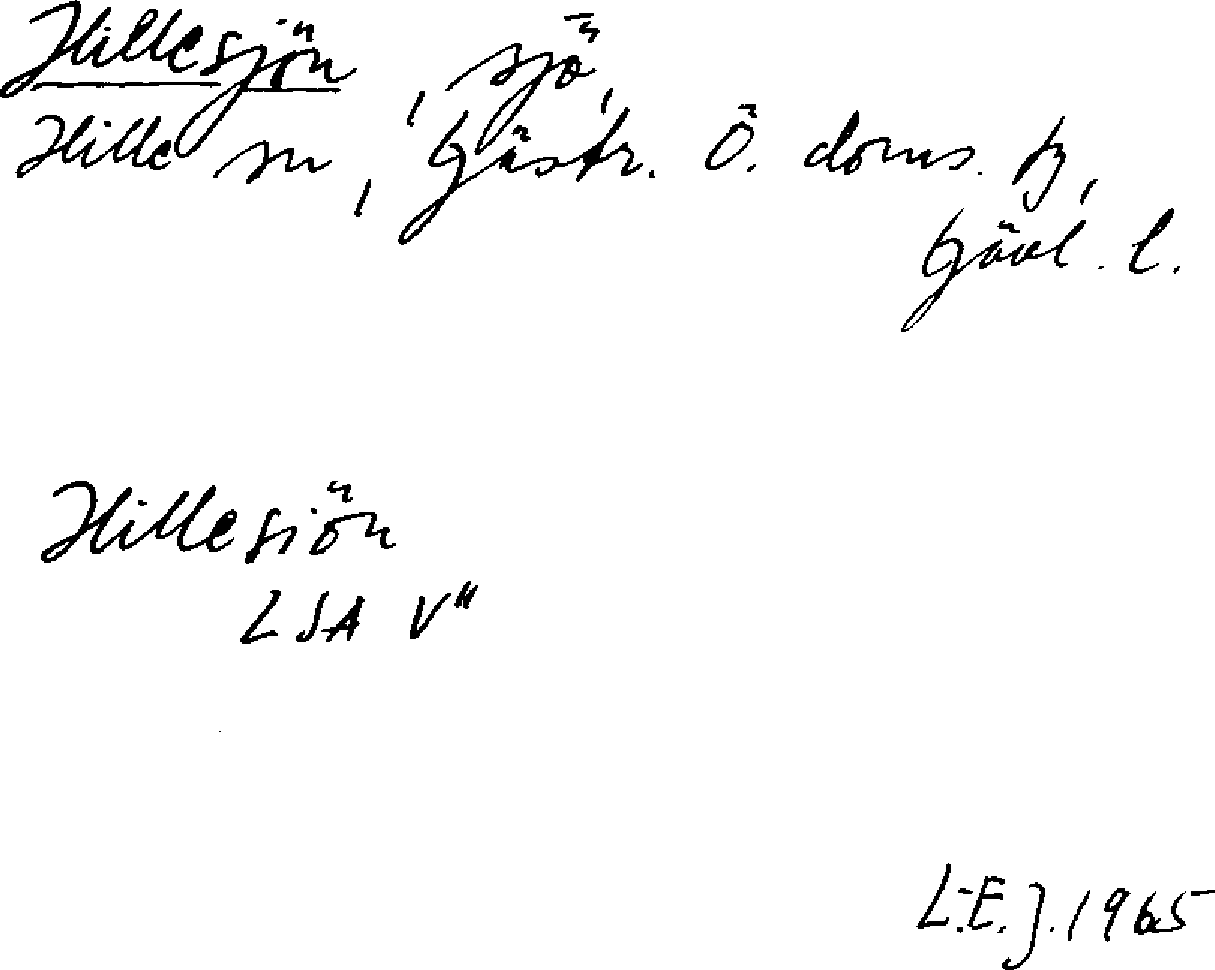 Hillesjön, sjö,
Hille sn, Gästr. Ö. doms. tg,
Gävl. l.
Hillesiön
LSA V"
L.E.J. 1965